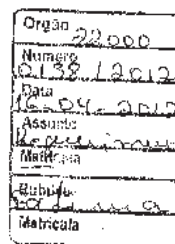 Orgão
22.000
Numero
0138 / 2012
Data
16.04.2012
Assunto
Matrícula
Rubrica
Matrícula